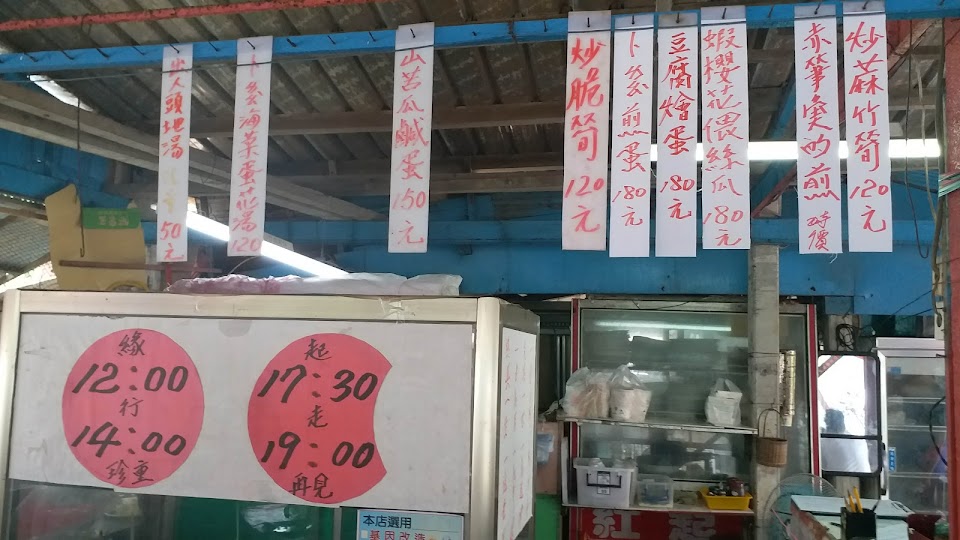 出人頭地湯 50元
海菜蛋花湯120
山苦瓜鹹蛋150元
炒脆筍120元
煎蛋180元
豆腐燴蛋180元
蝦櫻花偎絲瓜180元
赤筆 煎 時價
炒麻竹筍120元
緣
12:00
行
14:00
珍重
起
17:30
走
19:00
再見
本店選用
基因改造